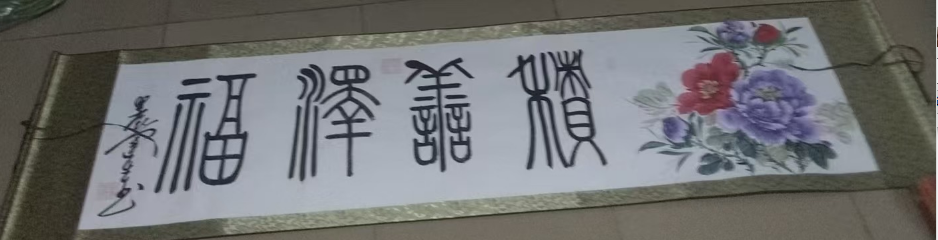 積善澤福